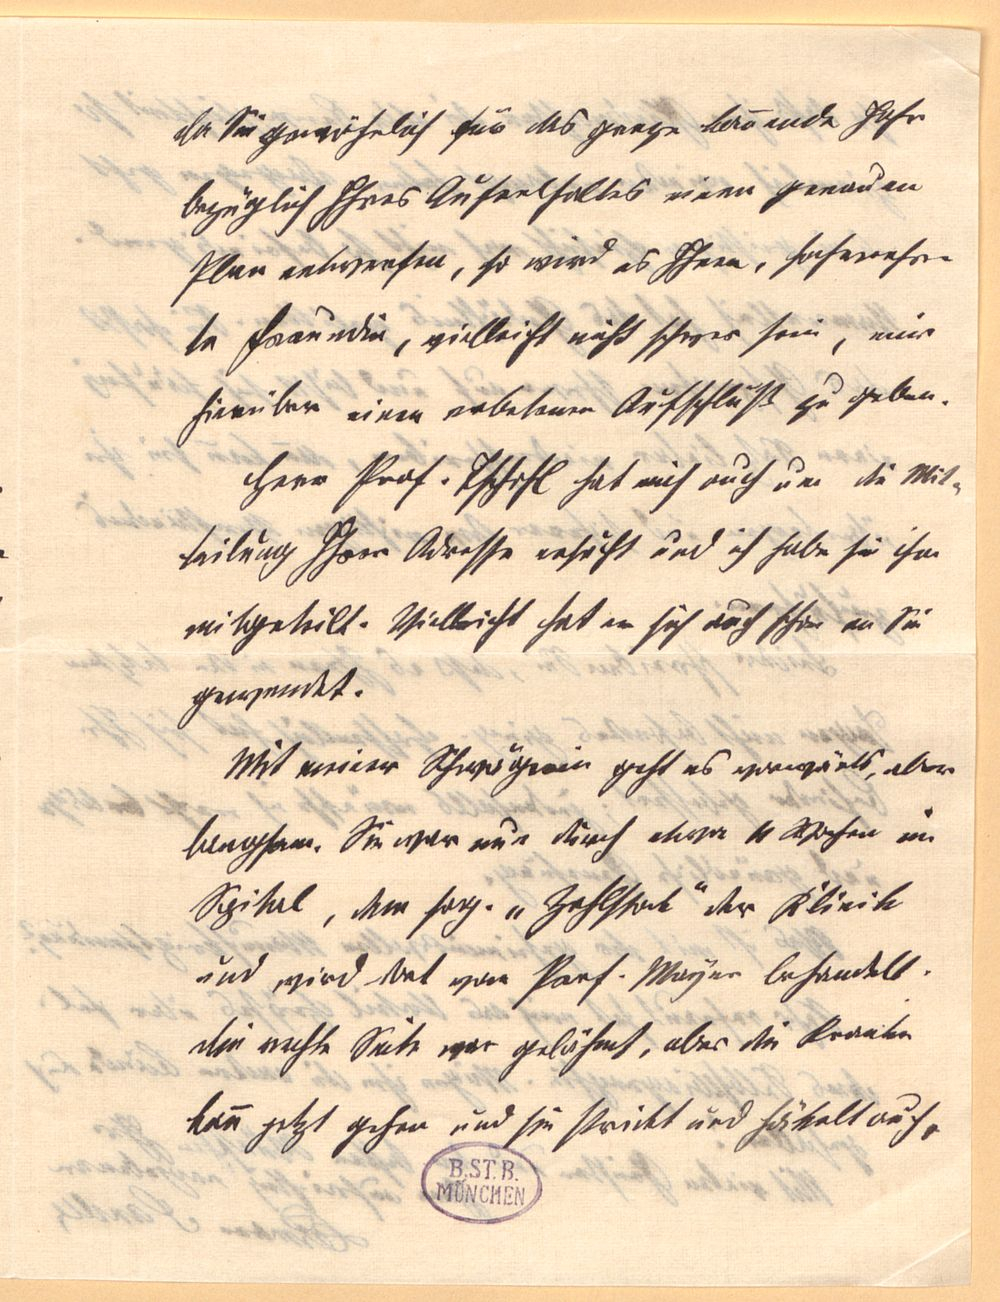 da Sie gewöhnlich für das ganze kom̄ende Jahr
bezüglich Ihres Aufenthaltes einen genauen
Plan entwerfen, so wird es Ihnen, hochverehr-
te Freundin, vielleicht nicht schwer sein, mir
hierüber einen erbetenen Aufschluß zu geben.
Herr Prof. hat mich auch um die Mit-
teilung Ihrer Adresse ersucht und ich habe sie ihm
mitgeteilt. Vielleicht hat er sich auch schon an Sie
gewendet.
Mit meiner Schwägerin geht es vorwärts, aber
langsam. Sie war nun durch etwa Wochen im
Spital, dem sog. „Zahlstock" der Klinik
und wird dort von Prof. Mayer behandelt.
Die rechte Seite war gelähmt, aber die Kranke
kan̄ jetzt gehen und sie strickt und häkelt auch.
B.ST.B.
MÜNCHEN